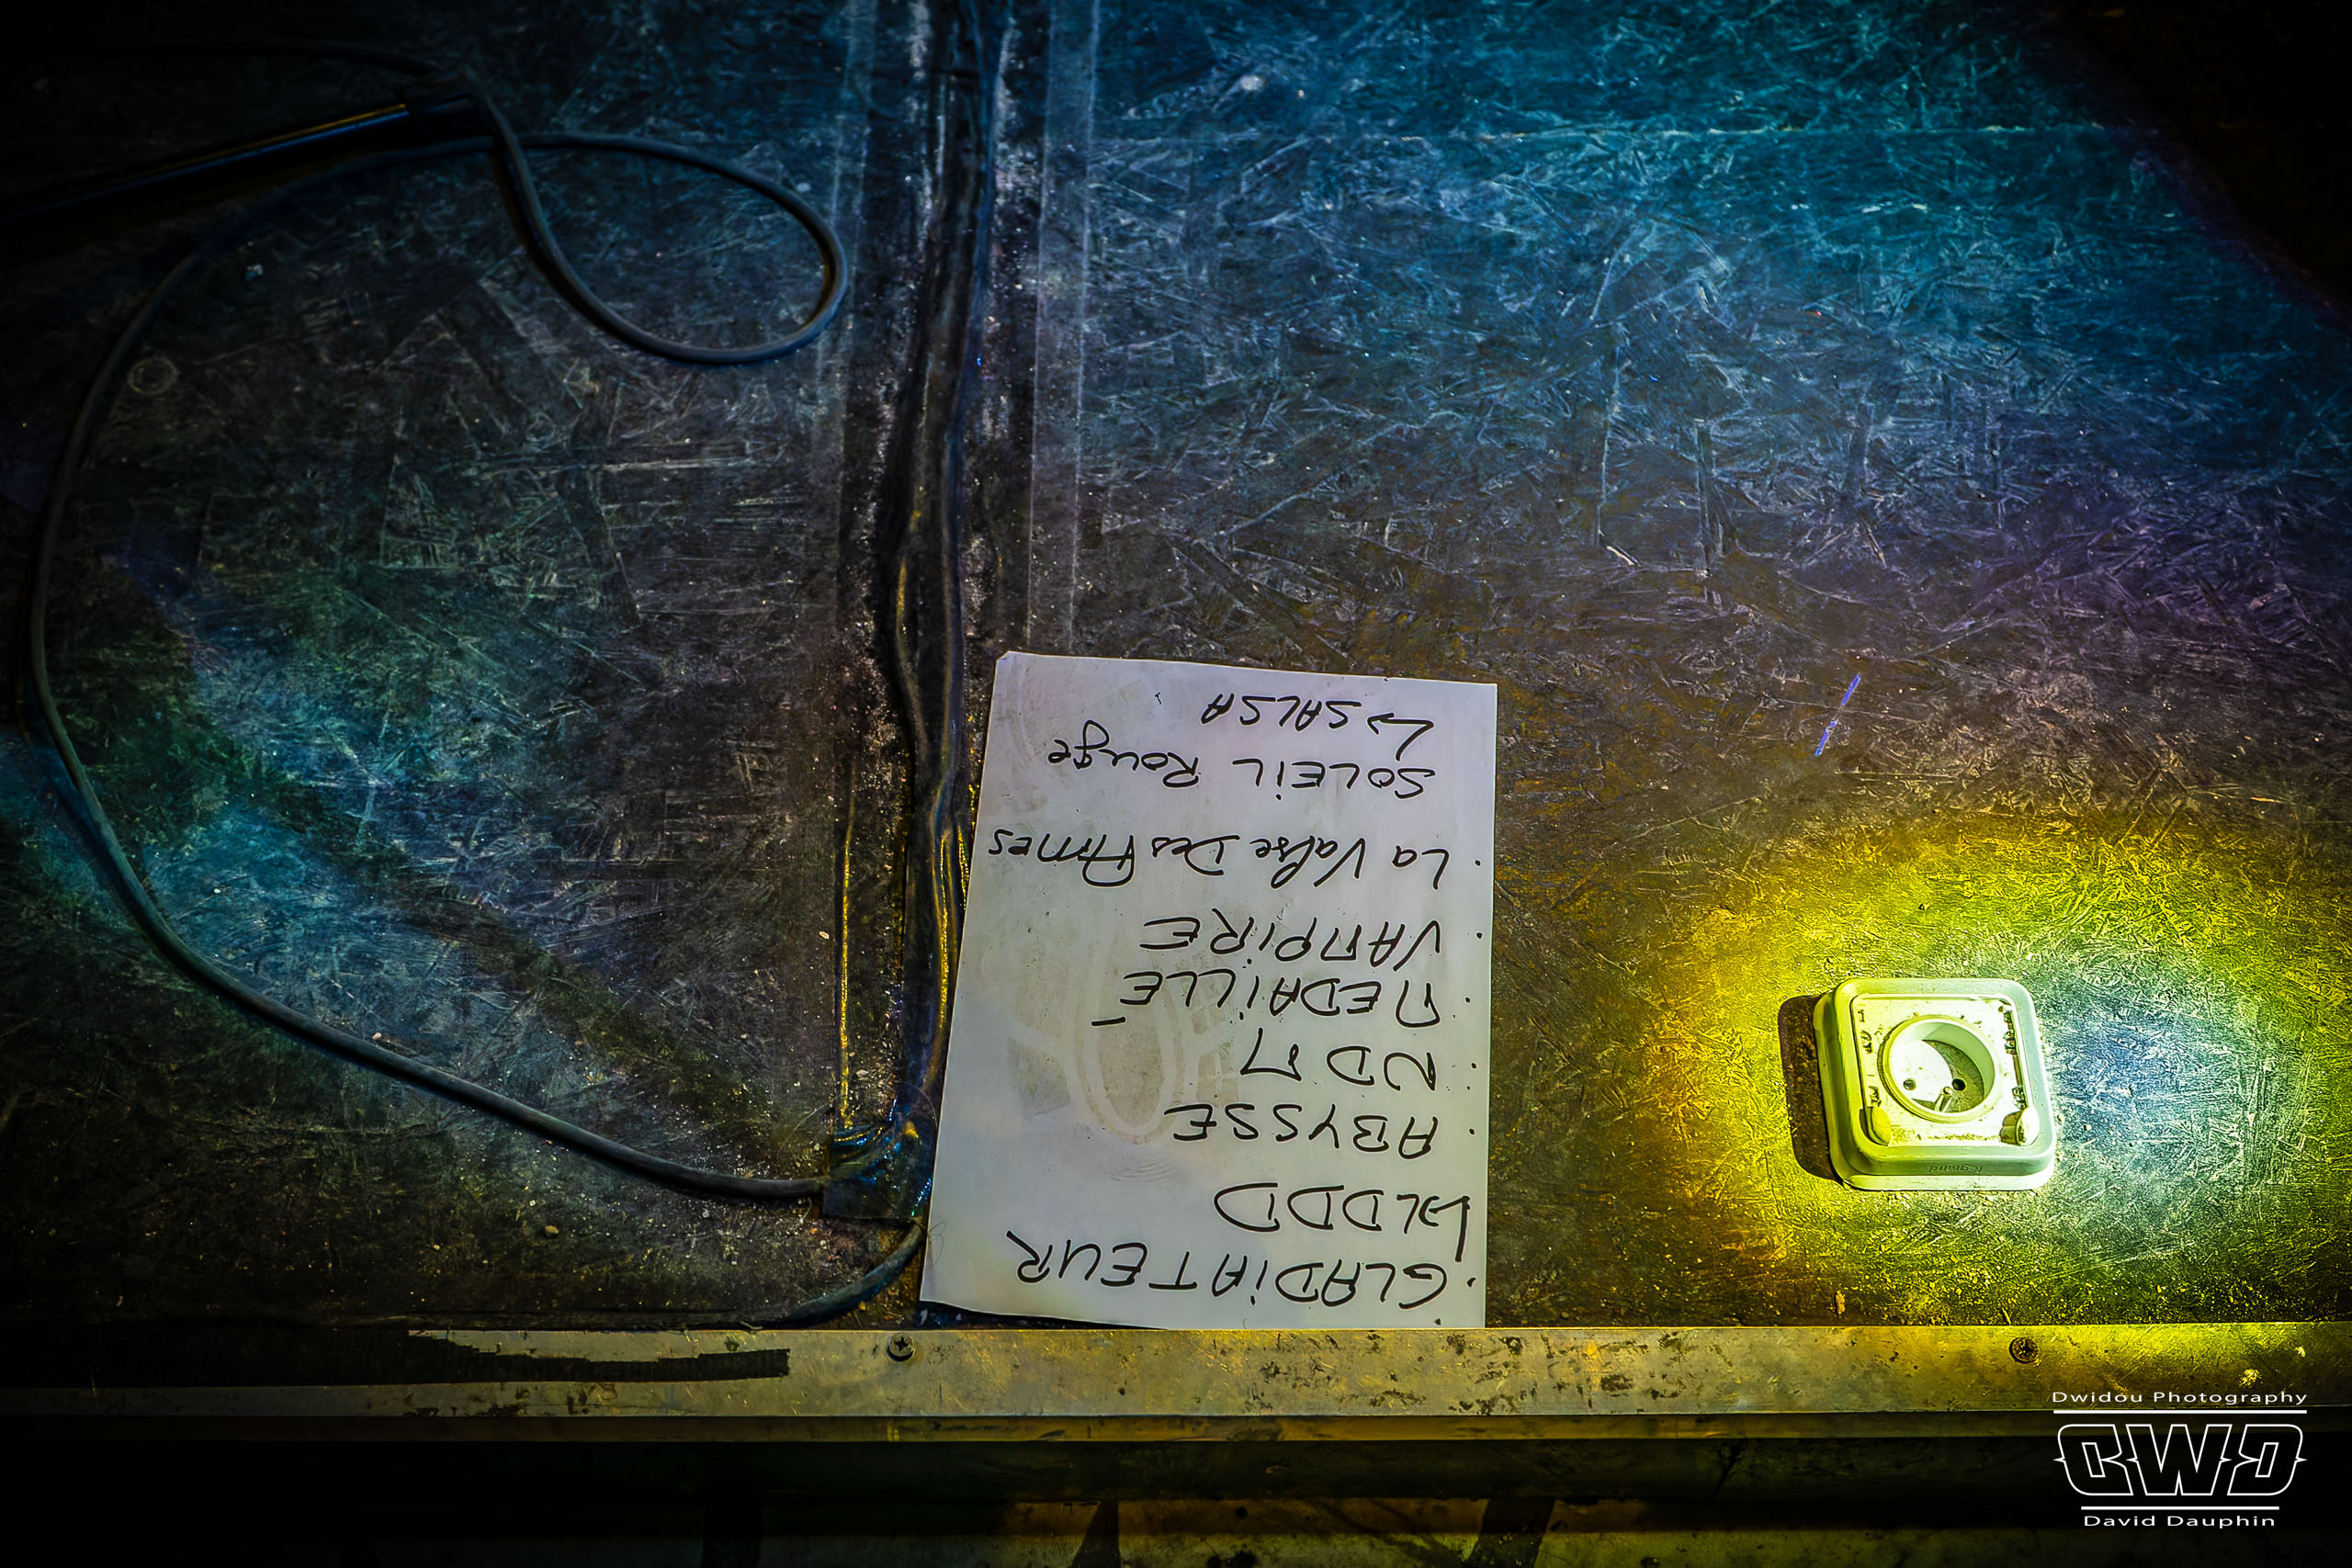 · GLADiATEUR
↳ LDDD
· ABYSSE
· NDM
· MEDAiLLÉ
· VAMPiRE
· La Valse Des Ames
SOLEiL Rouge
↳ SALSA
legrand
Dwidou Photography
DWD
David Dauphin